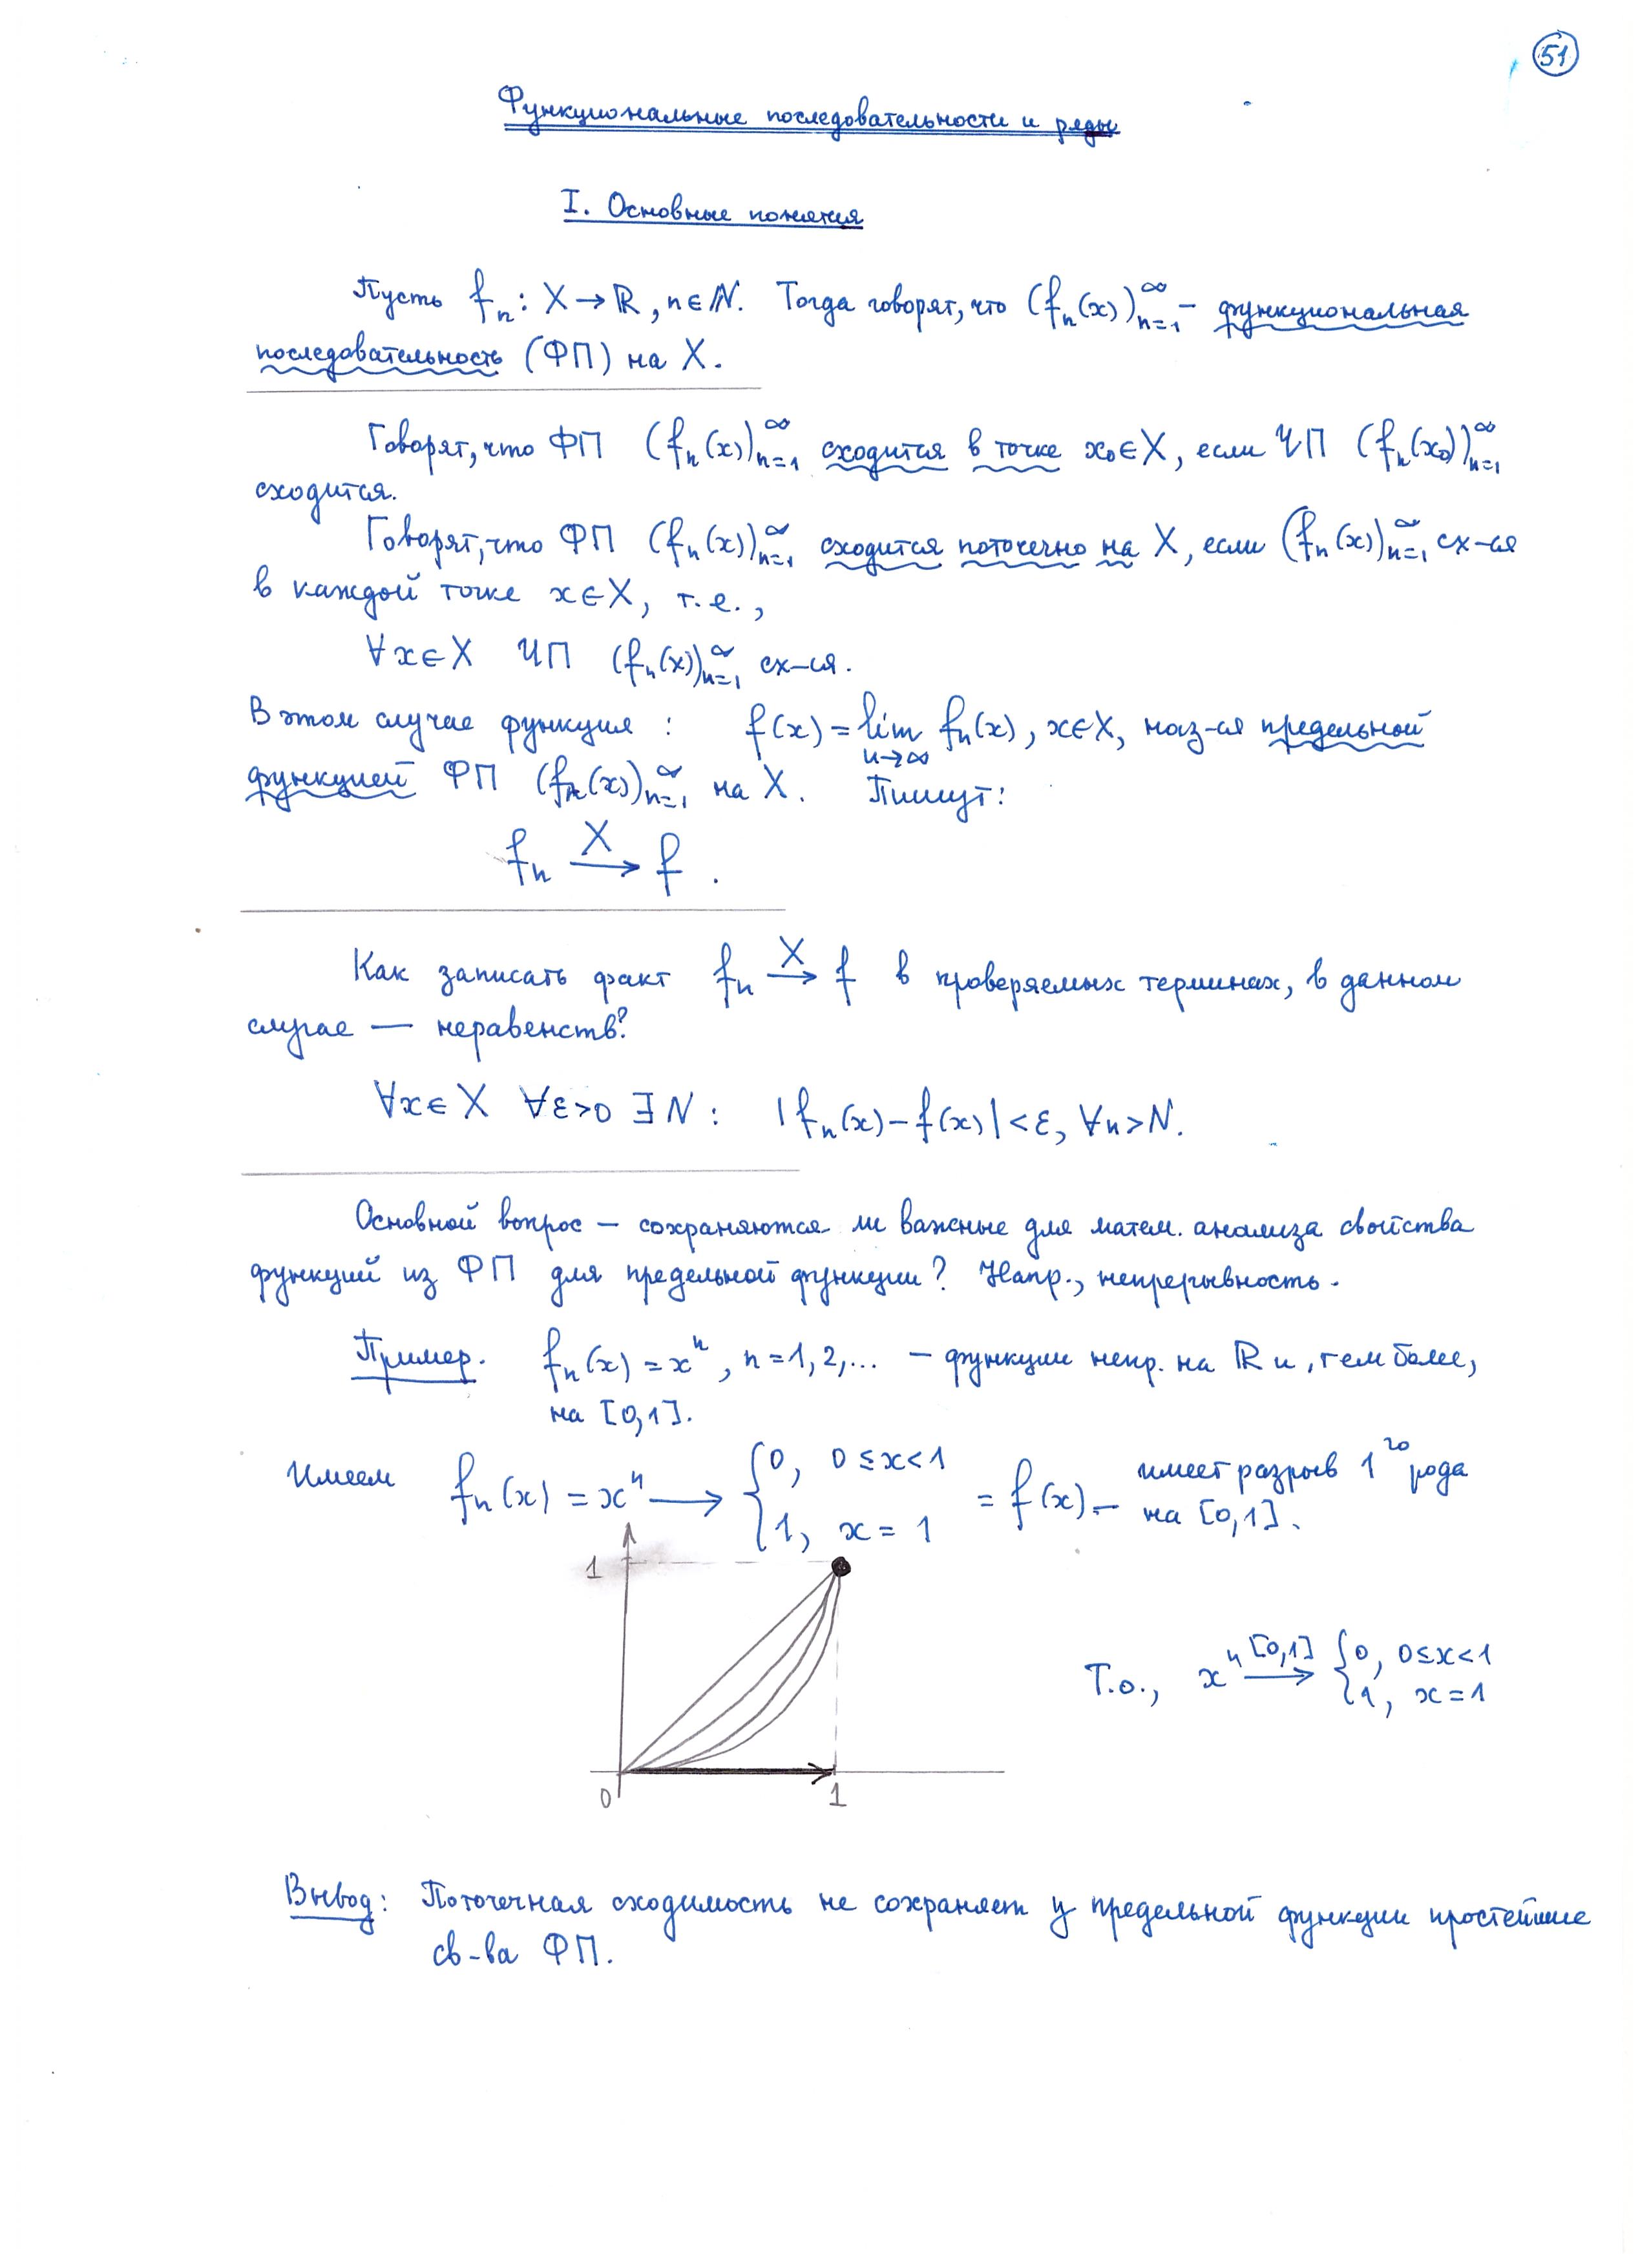 51
Функциональные последовательности и ряды
I. Основные понятия
Пусть fₙ: X → ℝ, n ∈ ℕ. Тогда говорят, что (fₙ(x))ₙ₌₁^∞ – функциональная
последовательность (ФП) на X.
Говорят, что ФП (fₙ(x))ₙ₌₁^∞ сходится в точке x₀ ∈ X, если ЧП (fₙ(x₀))ₙ₌₁^∞
сходится.
Говорят, что ФП (fₙ(x))ₙ₌₁^∞ сходится поточечно на X, если (fₙ(x))ₙ₌₁^∞ сх-ся
в каждой точке x ∈ X, т.е.,
∀x ∈ X ЧП (fₙ(x))ₙ₌₁^∞ сх-ся.
В этом случае функция : f(x) = lim fₙ(x), x ∈ X, наз-ся предельной
n→∞
функцией ФП (fₙ(x))ₙ₌₁^∞ на X. Пишут:
X
fₙ ⟶ f .
Как записать факт fₙ ⟶^X f в проверяемых терминах, в данном
случае — неравенств?
∀x ∈ X ∀ε>0 ∃N : |fₙ(x) – f(x)| < ε, ∀n > N.
Основной вопрос – сохраняются ли важные для матем. анализа свойства
функций из ФП для предельной функции? Напр., непрерывность.
Пример. fₙ(x) = xⁿ, n = 1, 2, ... – функции непр. на ℝ и, тем более,
на [0,1].
Имеем fₙ(x) = xⁿ ⟶ { 0, 0 ≤ x < 1 = f(x) – имеет разрыв 1го рода
1, x = 1 на [0,1].
1
Т.о., xⁿ ⟶^[0,1] { 0, 0 ≤ x < 1
1, x = 1
0 1
Вывод: Поточечная сходимость не сохраняет у предельной функции простейшие
св-ва ФП.